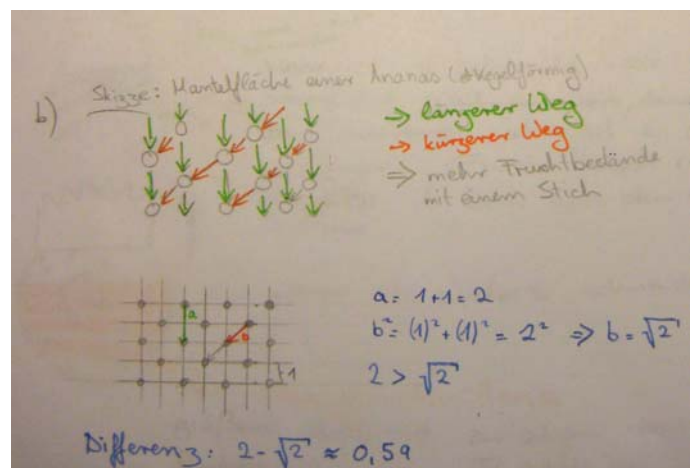 b) Skizze: Mantelfläche einer Ananas (≠ kegelförmig)
→ längerer Weg
→ kürzerer Weg
⇒ mehr Fruchtbestände
mit einem Stich
a
b
1
a = 1+1 = 2
b² = (1)² + (1)² = 2² ⇒ b = √2
2 > √2
Differenz: 2 - √2 ≈ 0,59